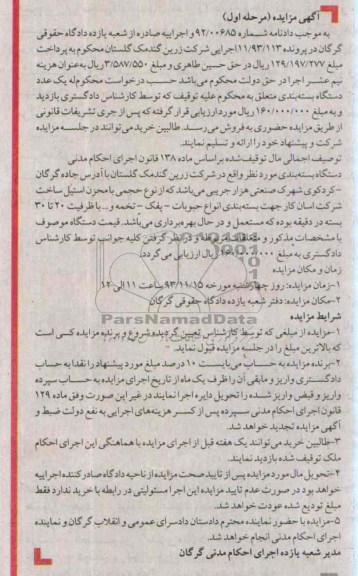 آگهی مزایده (مرحله اول)
به موجب دادنامه شماره ۹۲/۰۰۶۸۵ و اجراییه صادره از شعبه یازده دادگاه حقوقی
گرگان در پرونده ۱۱/۹۳/۱۱۳اجرایی شرکت زرین گندمک گلستان محکوم به پرداخت
مبلغ ۱۲۹/۱۹۷/۲۷۷ ریال در حق حسین طاهری و مبلغ ۳/۵۸۷/۵۵۰ ریال به عنوان هزینه
نیم عشر اجرا در حق دولت محکوم می‌باشد حسب درخواست محکوم‌له یک عدد
دستگاه بسته‌بندی متعلق به محکوم علیه توقیف که توسط کارشناس دادگستری بازدید
و به مبلغ ۱۶۰/۰۰۰/۰۰۰ ریال مورد ارزیابی قرار گرفته که پس از جری تشریفات قانونی
از طریق مزایده حضوری به فروش می‌رسد. طالبین خرید می‌توانند در جلسه مزایده
شرکت و پیشنهاد خود را ارائه و تسلیم نمایند.
توصیف اجمالی مال توقیف‌شده بر اساس ماده ۱۳۸ قانون اجرای احکام مدنی
دستگاه بسته‌بندی مورد نظر واقع در شرکت زرین گندمک گلستان با آدرس جاده گرگان
-کردکوی شهرک صنعتی هزار جریبی می‌باشد که از نوع حجمی با مخزن استیل ساخت
شرکت آسان کار جهت بسته‌بندی انواع حبوبات - پفک - تخمه و... با ظرفیت ۲۰ تا ۳۰
بسته در دقیقه بوده که مستعمل و در حال بهره‌برداری می‌باشد. قیمت دستگاه موصوف
با مشخصات مذکور و متعلقات مربوطه و در نظر گرفتن کلیه جوانب توسط کارشناس
دادگستری به مبلغ ۱۶۰/۰۰۰/۰۰۰ ریال ارزیابی می‌گردد.
زمان و مکان مزایده
۱-زمان مزایده: روز چهارشنبه مورخه ۹۳/۱۱/۱۵ ساعت ۱۱ الی ۱۲
۲-مکان مزایده: دفتر شعبه یازده دادگاه حقوقی گرگان
ParsNamadData
شرایط مزایده
۱-مزایده از مبلغی که توسط کارشناس تعیین گردیده شروع و برنده مزایده کسی است
که بالاترین مبلغ را در جلسه مزایده قبول نماید.
۲-برنده مزایده به حساب می‌بایست ۱۰ درصد مبلغ مورد پیشنهاد را نقداً به حساب
دادگستری واریز و مابقی آن را ظرف یک ماه از تاریخ اجرای مزایده به حساب سپرده
واریز و قبض واریز شده را تحویل دایره اجرا نمایند در غیر این صورت وفق ماده ۱۲۹
قانون اجرای احکام مدنی سپرده پس از کسر هزینه‌های اجرایی به نفع دولت ضبط و
آگهی مزایده تجدید خواهد شد.
۳-طالبین خرید می‌توانند یک هفته قبل از اجرای مزایده با هماهنگی این اجرای احکام
ملک توقیف شده بازدید نمایند.
۴-تحویل مال مورد مزایده پس از تایید صحت مزایده از ناحیه دادگاه صادر کننده اجراییه
خواهد بود در صورت عدم تایید مزایده این اجرا مسئولیتی در رابطه با خرید ندارد فقط
مبلغ تودیع شده عودت خواهد شد.
۵-مزایده با حضور نماینده محترم دادستان دادسرای عمومی و انقلاب گرگان و نماینده
اجرای احکام مدنی انجام خواهد شد.
مدیر شعبه یازده اجرای احکام مدنی گرگان